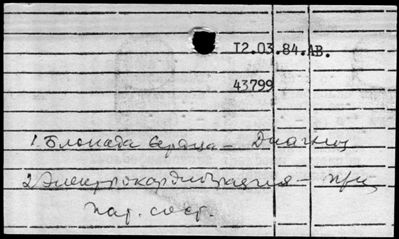 T2.03.84.AB.
43799
1. Блокада сердца - Диагноз
2. Электрокардиография - при
пат. сост.